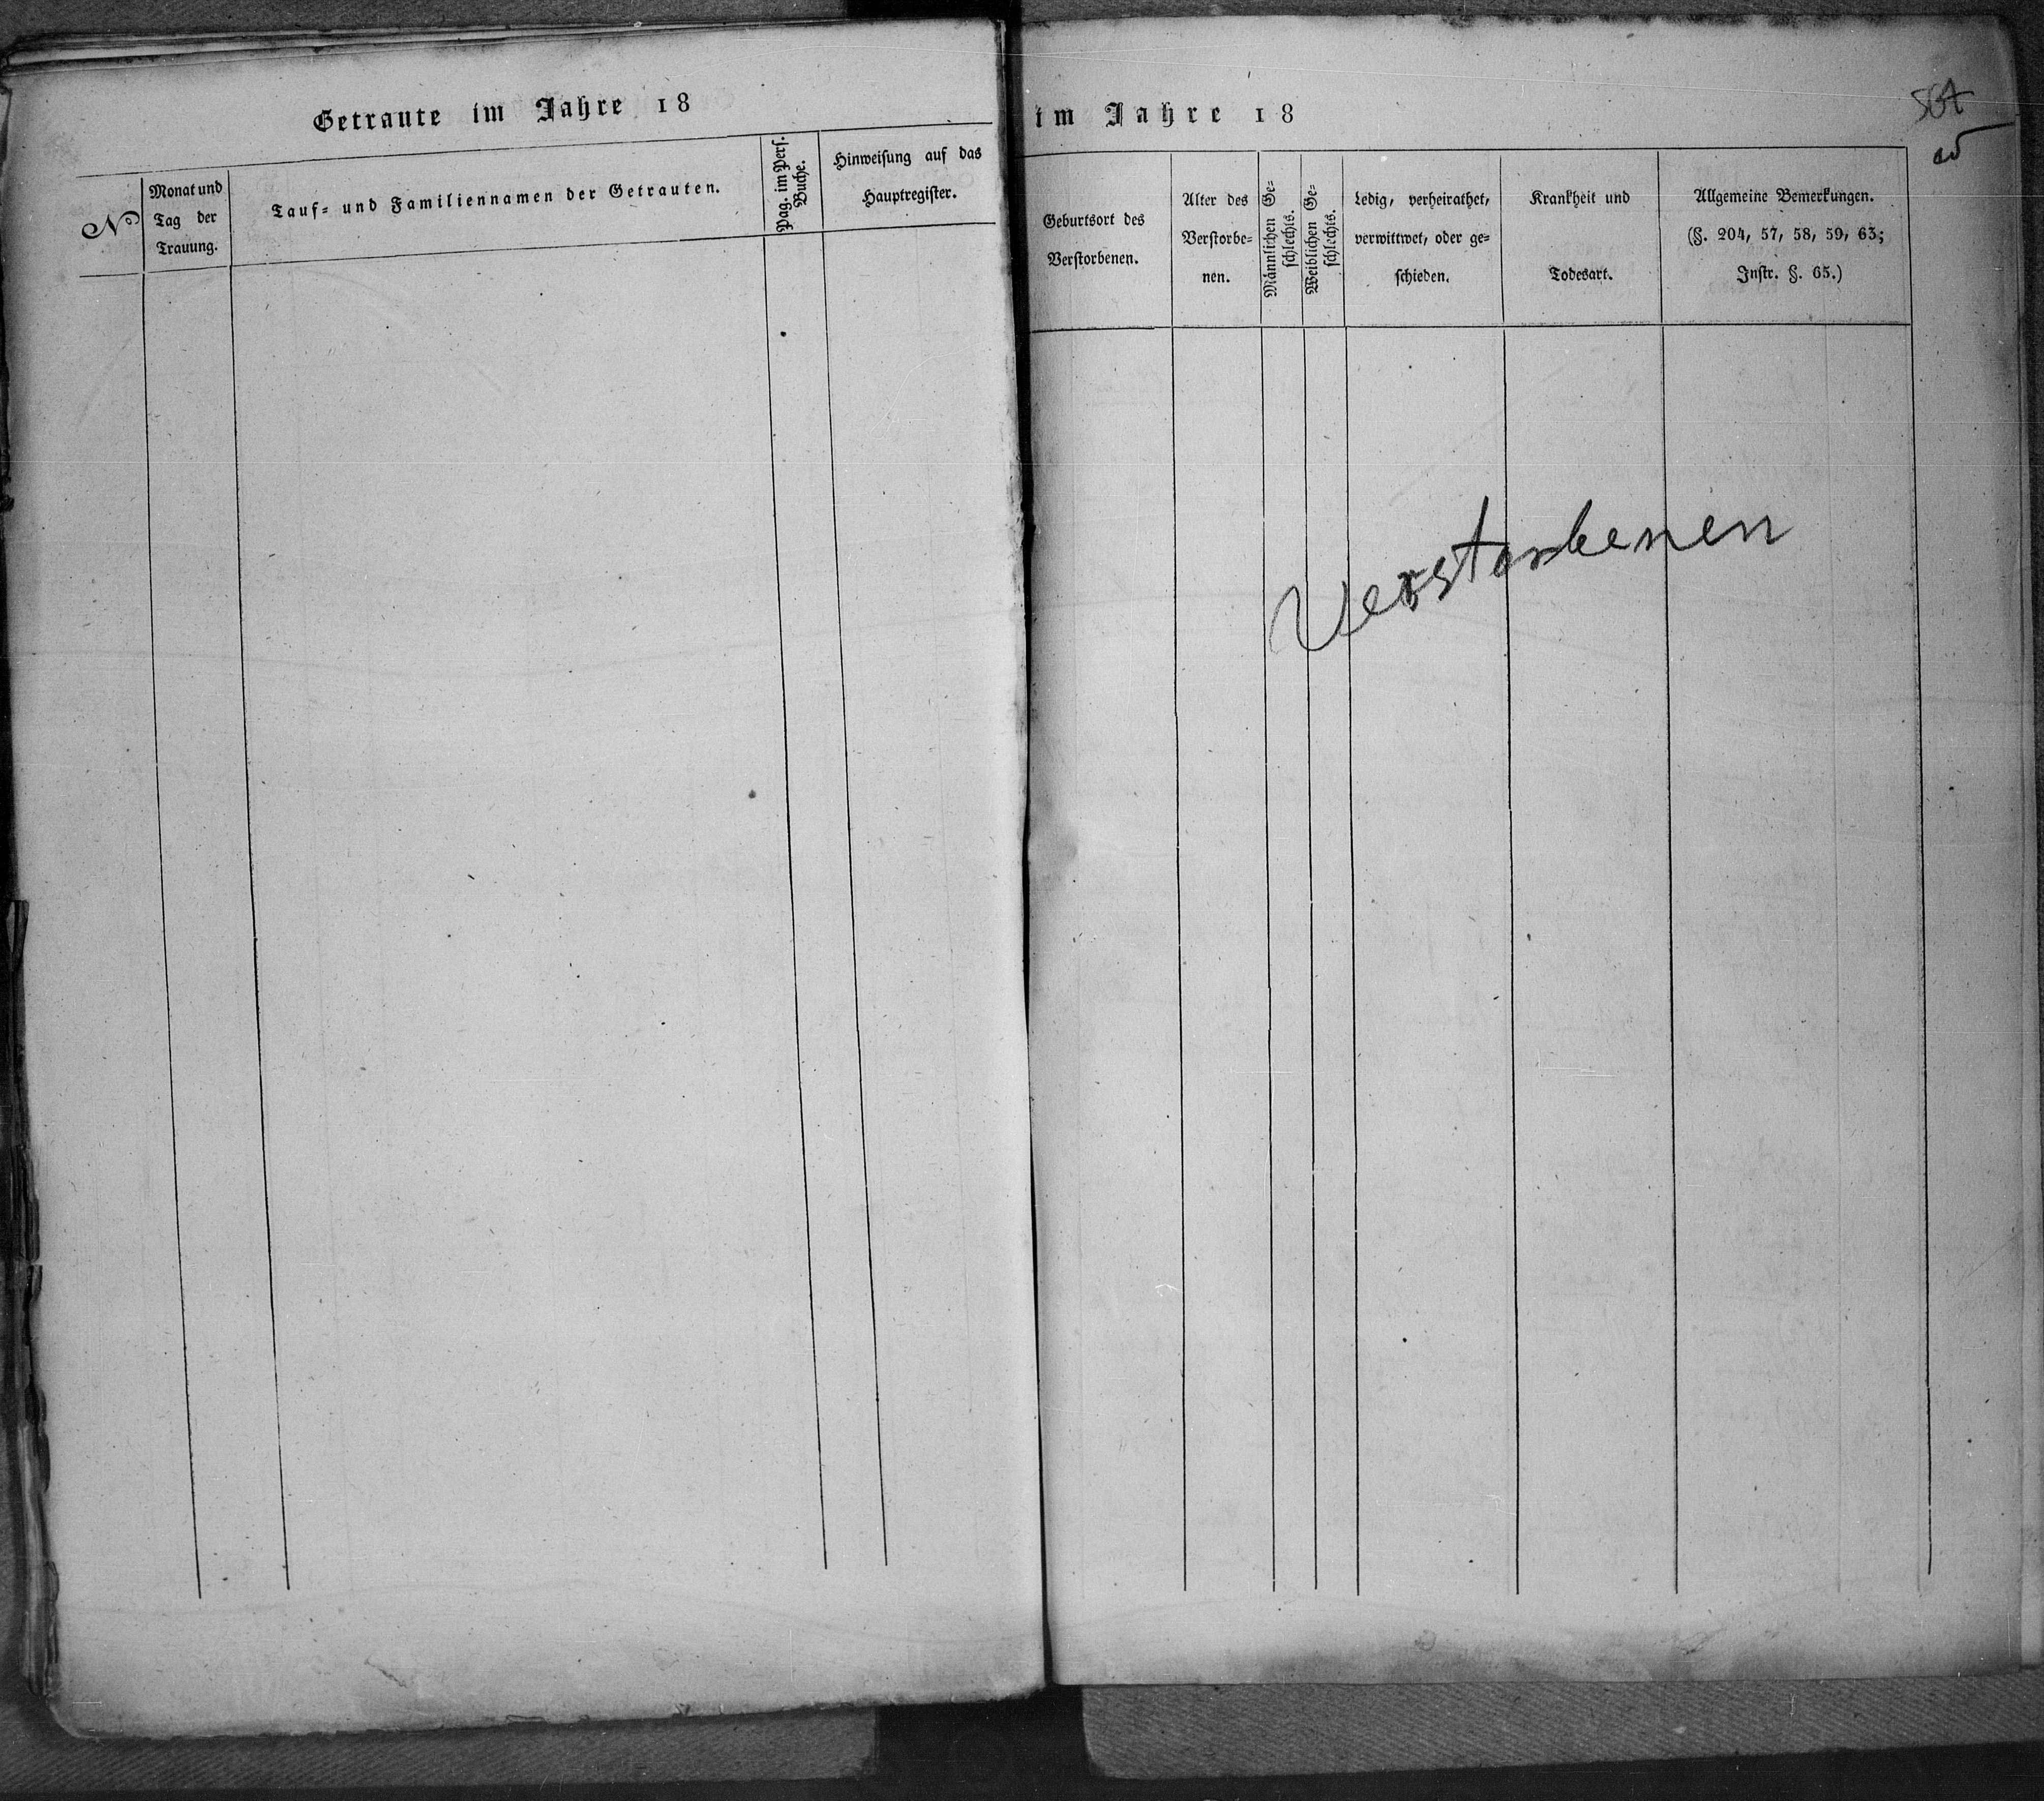 Getraute im Jahre 18
N
Monat und
Tag der
Trauung.
Tauf= und Familiennamen der Getrauten.
Pag. im Pers.
Buche.
Hinweisung auf das
Hauptregister.
im Jahre 18
Geburtsort des
Verstorbenen.
Alter des
Verstorbe=
nen.
Männlichen Ge=
schlechts.
Weiblichen Ge=
schlechts.
Ledig, verheirathet,
verwittwet, oder ge=
schieden.
Krankheit und
Todesart.
Allgemeine Bemerkungen.
(§. 204, 57, 58, 59, 63;
Instr. §. 65.)
Verstorbenen